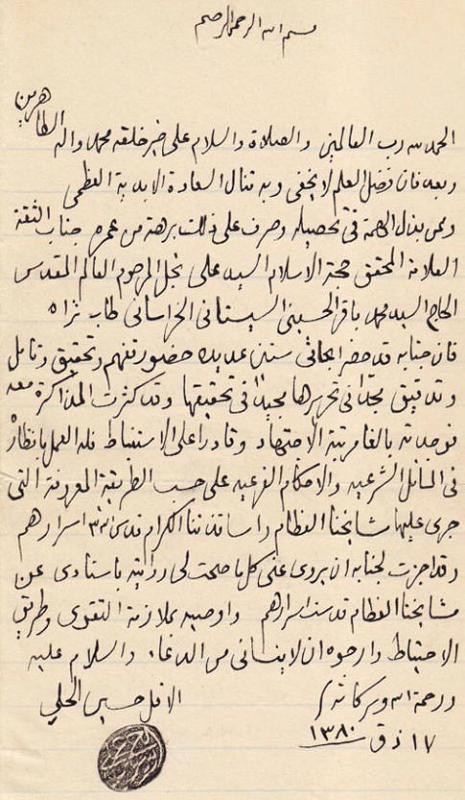 بسم الله الرحمن الرحيم
الحمد لله رب العالمين والصلاة والسلام على خير خلقه محمد واله الطاهرين
وبعد فان فضل العلم لا يخفى وبه تنال السعادة الابدية العظمى
وممن بذل الهمة في تحصيله وصرف على ذلك برهة من عمره جناب الثقة
العلامة المحقق حجة الاسلام السيد علي نجل المرحوم العالم المقدس
الحاج السيد محمد باقر الحسيني السيستاني الخراساني طاب ثراه
فان جنابه قد حضر ابحاثي سنين عديدة حضور تفهم وتحقيق وتامل
وتدقيق مجدا في تحريرها مجيدا في تحقيقها وقد كثرت المذاكرة معه
فوجدته بالغا مرتبة الاجتهاد وقادرا على الاستنباط فله العمل بانظاره
في المسائل الشرعيه والاحكام الفرعيه على حسب الطريقة المعروفة التي
جرى عليها مشايخنا العظام واساتذتنا الكرام قدس الله اسرارهم
وقد اجزت لجنابه ان يروي عني كل ما صحت لي روايته باسنادي عن
مشايخنا العظام قدست اسرارهم واوصيه بملازمة التقوى وطريق
الاحتياط وارجوه ان لا ينساني من الدعاء والسلام عليه
ورحمة الله وبركاته
الاقل حسين الحلي
١٧ ذق ١٣٨٠